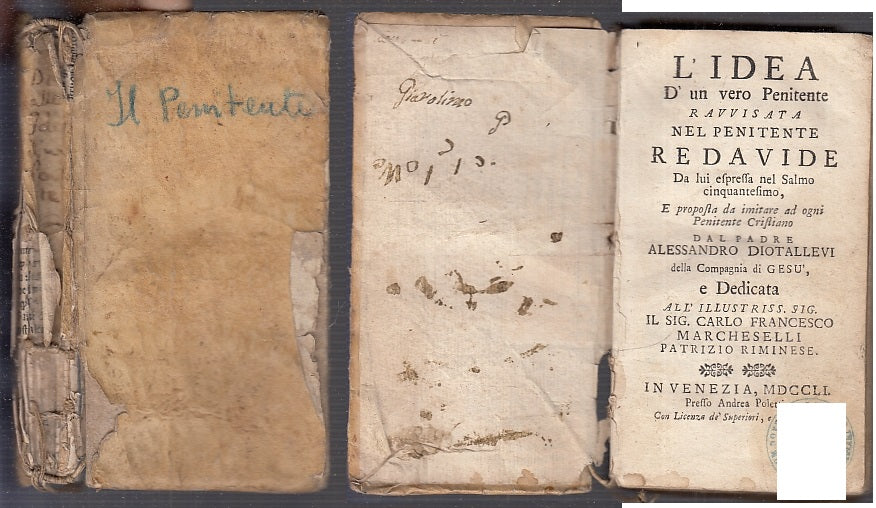 Il Penitente
Girolimo
L'IDEA
D' un vero Penitente
RAVVISATA
NEL PENITENTE
RE DAVIDE
Da lui eſpreſſa nel Salmo
cinquanteſimo,
E propoſta da imitare ad ogni
Penitente Criſtiano
DAL PADRE
ALESSANDRO DIOTALLEVI
della Compagnia di GESU',
e Dedicata
ALL' ILLUSTRISS. SIG.
IL SIG. CARLO FRANCESCO
MARCHESELLI
PATRIZIO RIMINESE.
IN VENEZIA, MDCCLI.
Preſſo Andrea
Con Licenza de' Superiori,